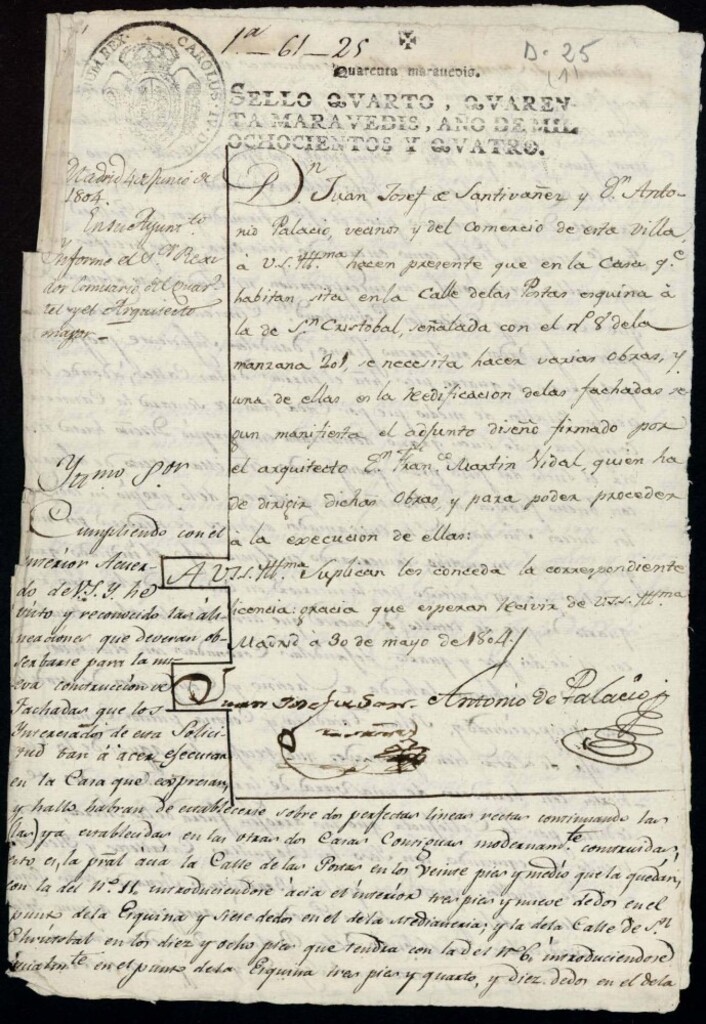 1ª - 61 - 25
D. 25
(1)
CAROLUS IV D.
UM REX
Quarenta marauedis.
SELLO QVARTO, QVAREN-
TA MARAVEDIS, AÑO DE MIL
OCHOCIENTOS Y QVATRO.
Madrid 4 de Junio de
1804.
En su Ayuntº
Informe el Sʳ Regi-
dor Comisario del Quar-
tel y el Arquitecto
mayor
Dⁿ Juan Josef de Santivañez y Dⁿ Anto-
nio Palacio, vecinos y del Comercio de esta Villa,
à V.S. Illma. hacen presente que en la Casa q.e
habitan sita en la Calle delas Postas esquina à
la de Sⁿ Cristobal, señalada con el nº 8 dela
manzana 201, se necesita hacer varias obras, y
una de ellas en la reedificacion delas fachadas se-
gun manifiesta el adjunto diseño firmado por
el arquitecto Dⁿ Fran.co Martin Vidal, quien ha
de dirigir dichas obras, y para poder proceder
à la execucion de ellas:
A V.S. Illma. Suplican les conceda la correspondiente
licencia: gracia que esperan recivir de V.S. Illma.
Madrid a 30 de mayo de 1804.
Juan Josef de San-
tivañez
Antonio de Palacio
Yllmo Sor
Cumpliendo con el
anterior Acuer-
do de V.S.Y. he
visto y reconocido las ali-
neaciones que deveran ob-
serbarse para la nu-
eva construccion de
Fachadas que los
Ynteresados de esta Solici-
tud ban à acer, ejecutar
en la Casa que expresan,
y hallo habran de establecerse sobre dos perfectas lineas rectas continuando las
(las) ya establecidas en las otras dos Casas Contiguas modernamte. construidas,
esto es, la pral acia la Calle de las Postas en los Veinte pies y medio que la quedan,
con la del Nº 11, introduciendose àcia el interior tres pies y nueve dedos en el
punto dela Esquina y siete dedos en el de la Medianeria; y la dela Calle de Sⁿ
Christobal en los diez y ocho pies que tendra con la del Nº 6, introduciendose
en el punto dela Esquina tres pies y quarto, y diez dedos en el dela